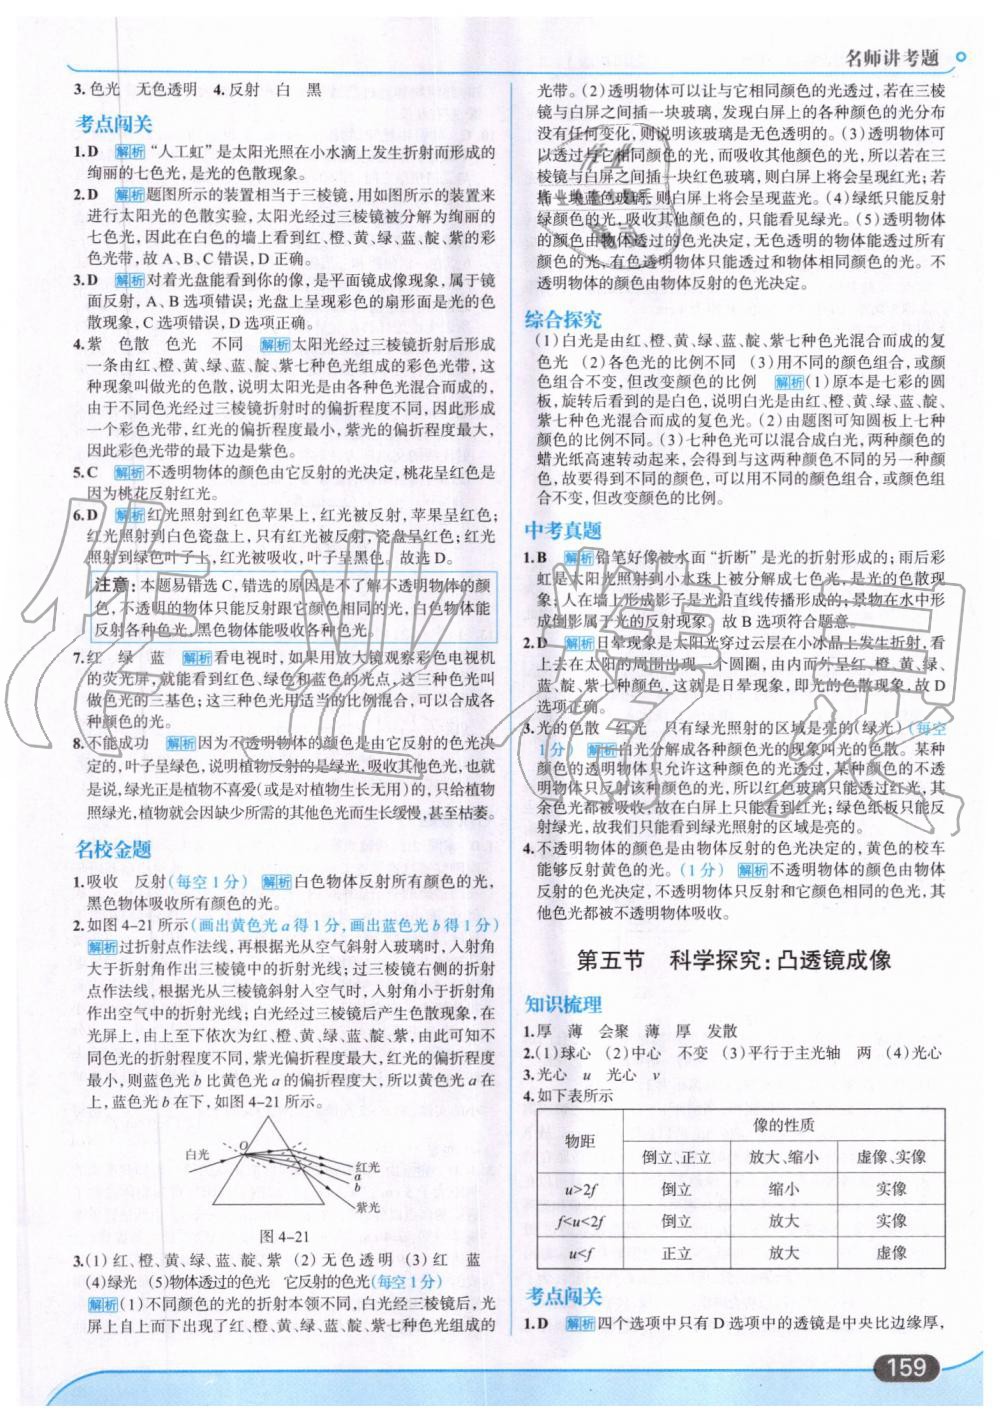 名师讲考题
3.色光 无色透明 4.反射 白 黑
考点闯关
1.D 解析 “人工虹”是太阳光照在小水滴上发生折射而形成的
绚丽的七色光,是光的色散现象。
2.D 解析 题图所示的装置相当于三棱镜,用如图所示的装置来
进行太阳光的色散实验,太阳光经过三棱镜被分解为绚丽的
七色光,因此在白色的墙上看到红、橙、黄、绿、蓝、靛、紫的彩
色光带,故 A、B、C 错误,D 正确。
3.D 解析 对着光盘能看到你的像,是平面镜成像现象,属于镜
面反射,A、B 选项错误;光盘上呈现彩色的扇形面是光的色
散现象,C 选项错误,D 选项正确。
4.紫 色散 色光 不同 解析 太阳光经过三棱镜折射后形成
一条由红、橙、黄、绿、蓝、靛、紫七种色光组成的彩色光带,这
种现象叫做光的色散,说明太阳光是由各种色光混合而成的,
由于不同色光经过三棱镜折射时的偏折程度不同,因此形成
一个彩色光带,红光的偏折程度最小,紫光的偏折程度最大,
因此彩色光带的最下边是紫色。
5.C 解析 不透明物体的颜色由它反射的光决定,桃花呈红色是
因为桃花反射红光。
6.D 解析 红光照射到红色苹果上,红光被反射,苹果呈红色;
红光照射到白色瓷盘上,只有红光被反射,瓷盘呈红色;红光
照射到绿色叶子上,红光被吸收,叶子呈黑色。故选 D。
注意:本题易错选 C,错选的原因是不了解不透明物体的颜
色,不透明的物体只能反射跟它颜色相同的光,白色物体能
反射各种色光,黑色物体能吸收各种色光。
7.红 绿 蓝 解析 看电视时,如果用放大镜观察彩色电视机
的荧光屏,就能看到红色、绿色和蓝色的光点,这三种色光叫
做色光的三基色;这三种色光用适当的比例混合,可以合成各
种颜色的光。
8.不能成功 解析 因为不透明物体的颜色是由它反射的色光决
定的,叶子呈绿色,说明植物反射的是绿光,吸收其他色光,也就
是说,绿光正是植物不喜爱(或是对植物生长无用)的,只给植物
照绿光,植物就会因缺少所需的其他色光而生长缓慢,甚至枯萎。
名校金题
1.吸收 反射(每空 1 分) 解析 白色物体反射所有颜色的光,
黑色物体吸收所有颜色的光。
2.如图 4-21 所示(画出黄色光 a 得 1 分,画出蓝色光 b 得 1 分)
解析 过折射点作法线,再根据光从空气斜射入玻璃时,入射角
大于折射角作出三棱镜中的折射光线;过三棱镜右侧的折射
点作法线,根据光从三棱镜斜射入空气时,入射角小于折射角
作出空气中的折射光线;白光经过三棱镜后产生色散现象,在
光屏上,由上至下依次为红、橙、黄、绿、蓝、靛、紫,由此可知不
同色光的折射程度不同,紫光偏折程度最大,红光的偏折程度
最小,则蓝色光 b 比黄色光 a 的偏折程度大,所以黄色光 a 在
上,蓝色光 b 在下,如图 4-21 所示。
白光
O
红光
a
b
紫光
图 4-21
3.(1)红、橙、黄、绿、蓝、靛、紫 (2)无色透明 (3)红 蓝
(4)绿光 (5)物体透过的色光 它反射的色光(每空 1 分)
解析 (1)不同颜色的光的折射本领不同,白光经三棱镜后,光
屏上自上而下出现了红、橙、黄、绿、蓝、靛、紫七种色光组成的
光带。(2)透明物体可以让与它相同颜色的光透过,若在三棱
镜与白屏之间插一块玻璃,发现白屏上的各种颜色的光分布
没有任何变化,则说明该玻璃是无色透明的。(3)透明物体可
以透过与它相同颜色的光,而吸收其他颜色的光,所以若在三
棱镜与白屏之间插一块红色玻璃,则白屏上将会呈现红光;若
插一块蓝色玻璃,则白屏上将会呈现蓝光。(4)绿纸只能反射
绿颜色的光,吸收其他颜色的,只能看见绿光。(5)透明物体
的颜色由物体透过的色光决定,无色透明的物体能透过所有
颜色的光,有色透明物体只能透过和物体相同颜色的光。不
透明物体的颜色由物体反射的色光决定。
综合探究
(1)白光是由红、橙、黄、绿、蓝、靛、紫七种色光混合而成的复
色光 (2)各色光的比例不同 (3)用不同的颜色组合,或颜
色组合不变,但改变颜色的比例 解析 (1)原本是七彩的圆
板,旋转后看到的是白色,说明白光是由红、橙、黄、绿、蓝、靛、
紫七种色光混合而成的复色光。(2)由题图可知圆板上七种
颜色的比例不同。(3)七种色光可以混合成白光,两种颜色的
蜡光纸高速转动起来,会得到与这两种颜色不同的另一种颜
色,故要得到不同的颜色,可以用不同的颜色组合,或颜色组
合不变,但改变颜色的比例。
中考真题
1.B 解析 铅笔好像被水面“折断”是光的折射形成的;雨后彩
虹是太阳光照射到小水珠上被分解成七色光,是光的色散现
象;人在墙上形成影子是光沿直线传播形成的;景物在水中形
成倒影属于光的反射现象。故 B 选项符合题意。
2.D 解析 日晕现象是太阳光穿过云层在小冰晶上发生折射,看
上去在太阳的周围出现一个圆圈,由内而外呈红、橙、黄、绿、
蓝、靛、紫七种颜色,这就是日晕现象,即光的色散现象,故 D
选项正确。
3.光的色散 红光 只有绿光照射的区域是亮的(绿光)(每空
1 分) 解析 白光分解成各种颜色光的现象叫光的色散。某种
颜色的透明物体只允许这种颜色的光透过,某种颜色的不透
明物体只反射该种颜色的光,所以红色玻璃只能透过红光,其
余色光都被吸收,故在白屏上只能看到红光;绿色纸板只能反
射绿光,故我们只能看到绿光照射的区域是亮的。
4.不透明物体的颜色是由物体反射的色光决定的,黄色的校车
能够反射黄色的光。(1 分) 解析 不透明物体的颜色由物体
反射的色光决定,不透明物体只反射和它颜色相同的色光,其
他色光都被不透明物体吸收。
第五节 科学探究:凸透镜成像
知识梳理
1.厚 薄 会聚 薄 厚 发散
2.(1)球心 (2)中心 不变 (3)平行于主光轴 两 (4)光心
3.光心 u 光心 v
4.如下表所示
物距 像的性质
倒立、正立 放大、缩小 虚像、实像
u>2f 倒立 缩小 实像
f<u<2f 倒立 放大 实像
u<f 正立 放大 虚像
考点闯关
1.D 解析 四个选项中只有 D 选项中的透镜是中央比边缘厚,
159
作业精灵